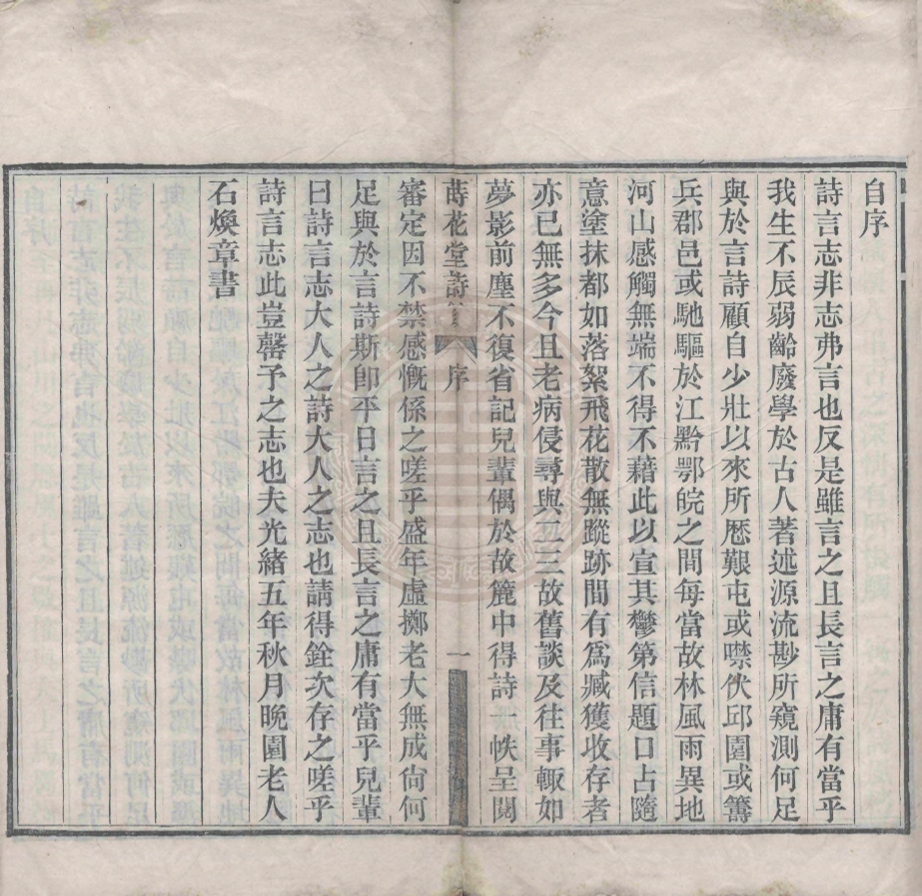 自序
詩言志非志弗言也反是雖言之且長言之庸有當乎
我生不辰弱齡廢學於古人著述源流尠所窺測何足
與於言詩顧自少壯以來所歴艱屯或噤伏邱園或籌
兵郡邑或馳驅於江黔鄂皖之間每當故林風雨異地
河山感觸無端不得不藉此以宣其鬱第信題口占隨
意塗抹都如落絮飛花散無蹤跡間有爲臧獲收存者
亦已無多今且老病侵尋與二三故舊談及往事輙如
夢影前塵不復省記兒輩偶於故簏中得詩一帙呈閱
蒔花堂詩 序 一
審定因不禁感慨係之嗟乎盛年虛擲老大無成尙何
足與於言詩斯卽平日言之且長言之庸有當乎兒輩
曰詩言志大人之詩大人之志也請得銓次存之嗟乎
詩言志此豈罄予之志也夫光緒五年秋月晚園老人
石煥章書